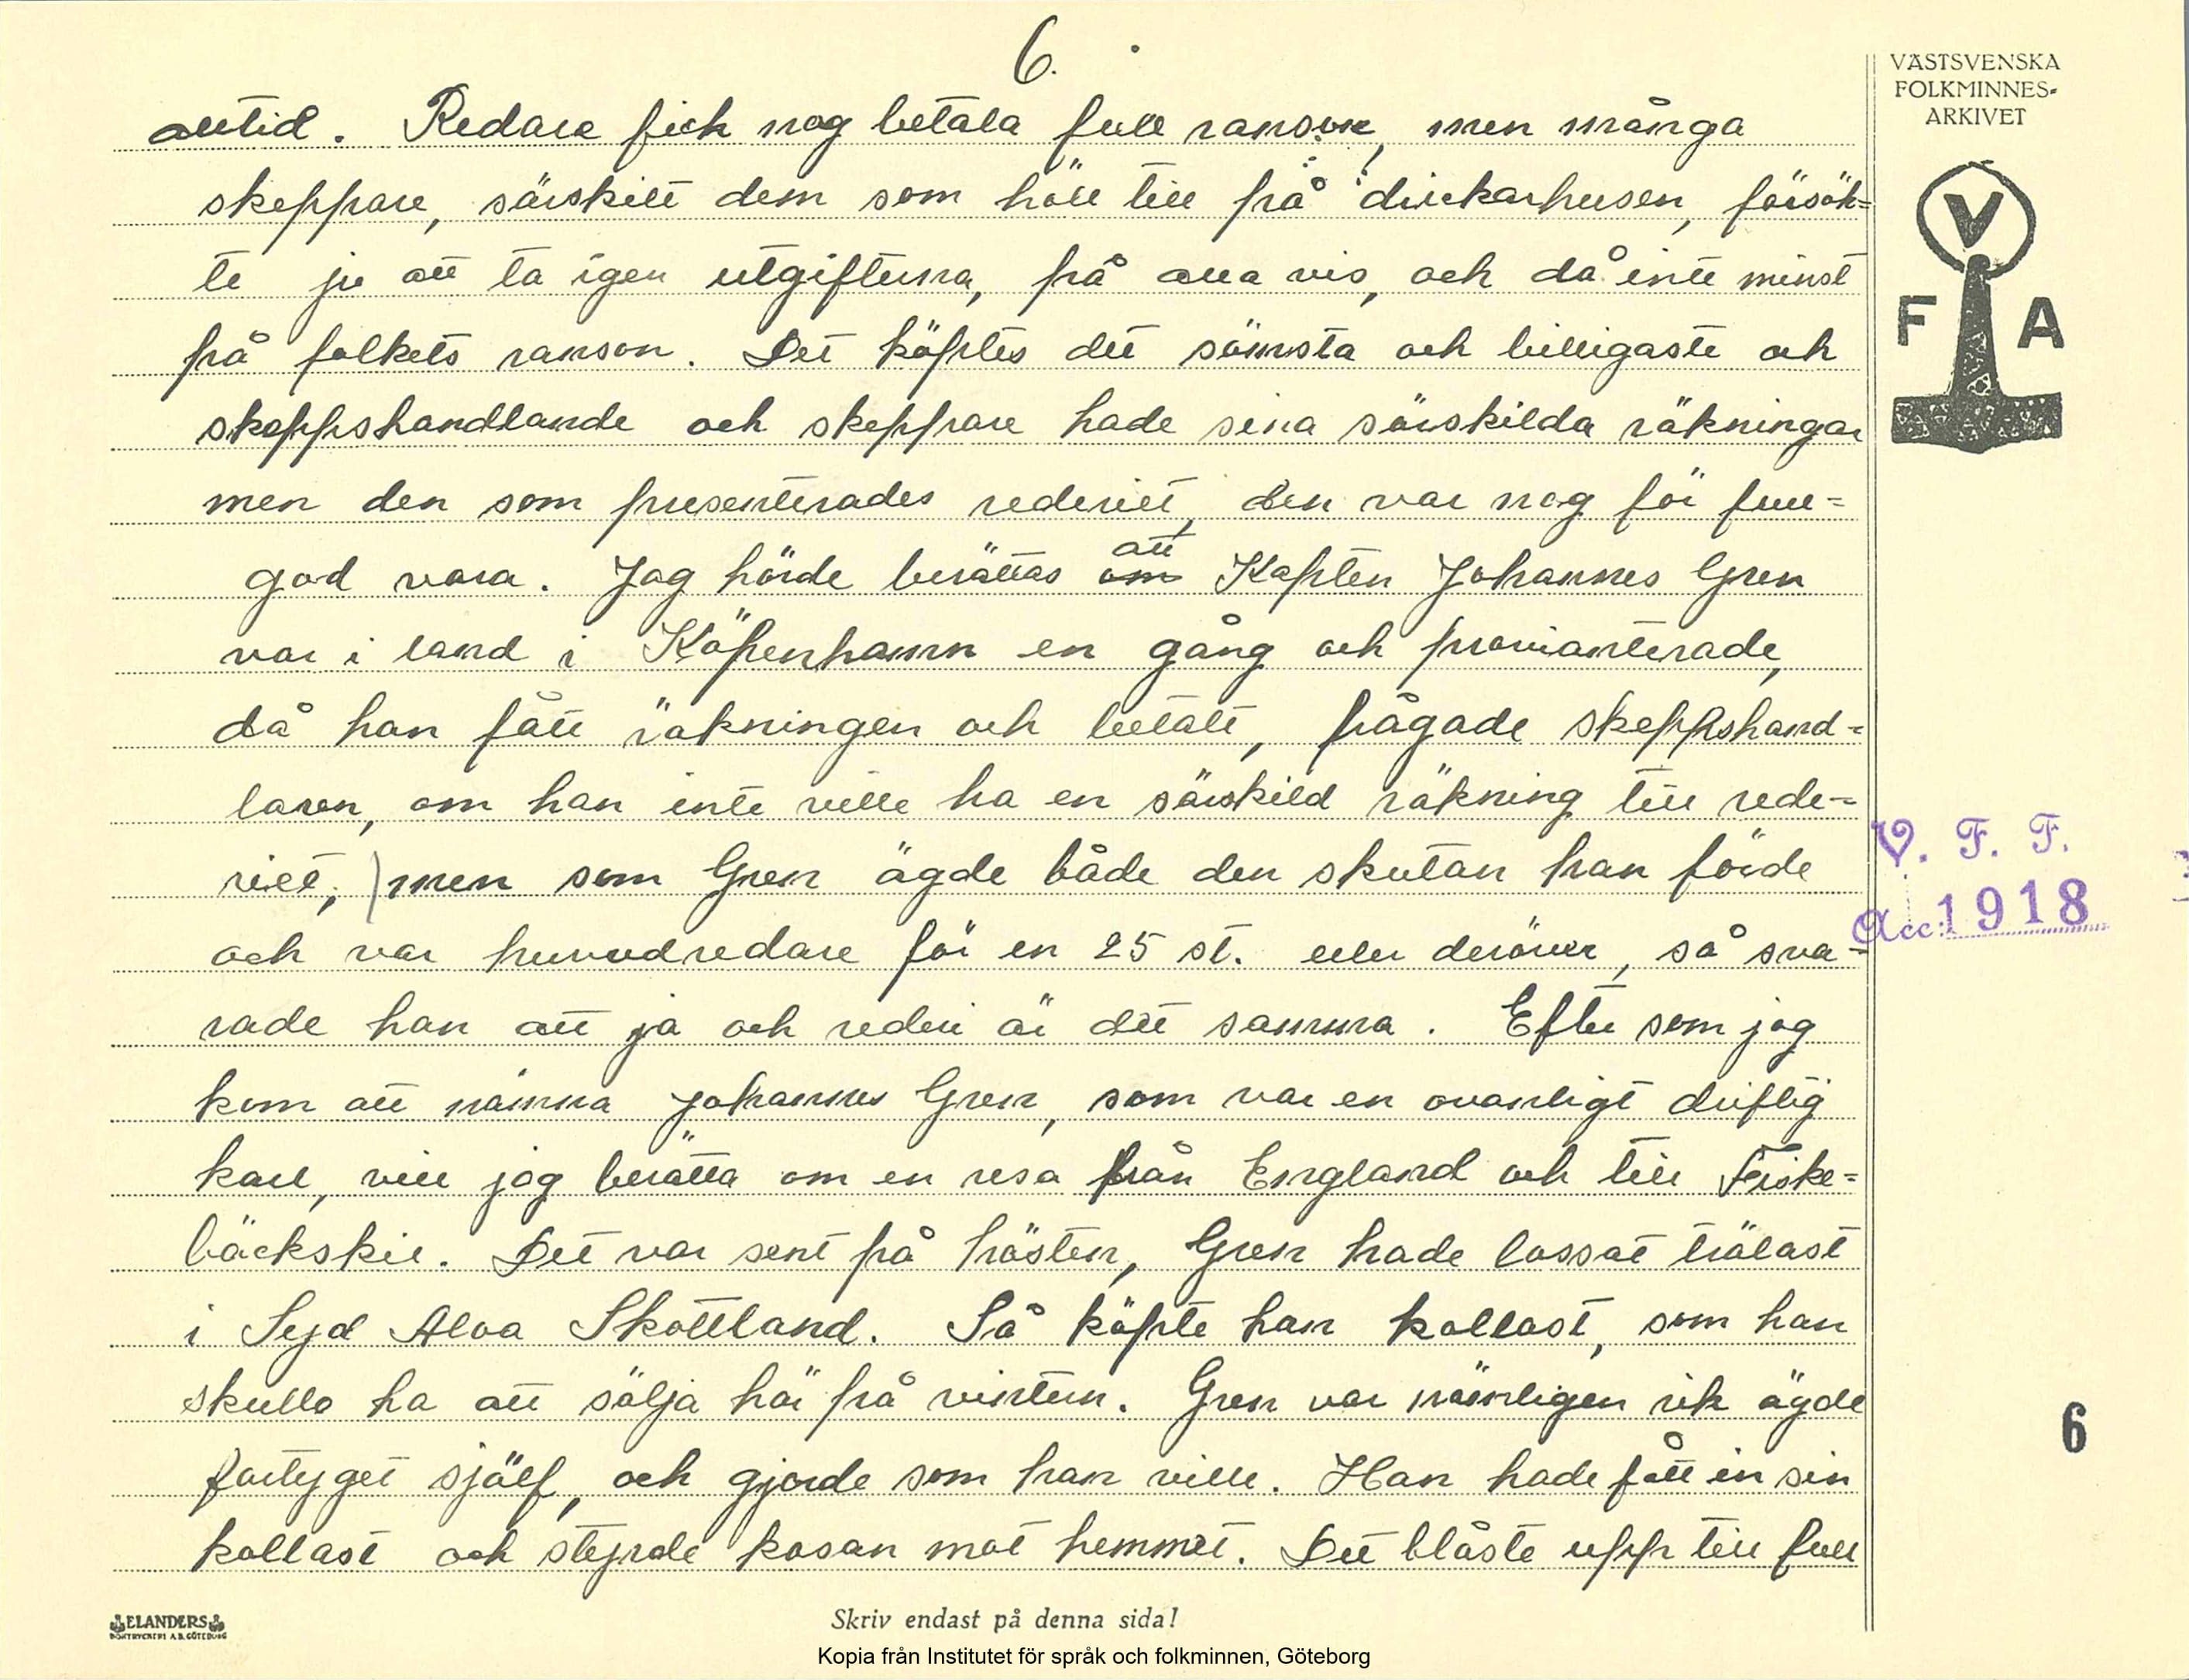 6.
alltid. Redare fick nog betala full ranson, men många
skeppare, särskilt dem som höll till på dirickarhusen, försök=
te ju att ta igen utgifterna, på alla vis, och då inte minst
på folkets ranson. Det köptes det sämsta och billigaste och
skeppshandlande och skeppare hade sina särskilda räkningar
men den som presenterades rederiet, den var nog för full=
god vara. Jag hörde berättas om att Kapten Johannes Gren
var i land i Köpenhamn en gång och provianterade,
då han fått räkningen och betalt, frågade skeppshand=
laren, om han inte ville ha en särskild räkning till rede=
riet, ) men som Gren ägde både den skutan han förde
och var huvudredare för en 25 st. eller deröver, så sva=
rade han att ja och rederi är det samma. Efter som jag
kom att nämna Johannes Gren, som var en ovanligt driftig
karl, vill jag berätta om en resa från England och till Fiske=
bäckskil. Det var sent på hösten, Gren hade lossat trälast
i Syd Aloa Skottland. Så köpte han kollast, som han
skulle ha att sälja här på vintern. Gren var nämligen rik ägde
fartyget själf, och gjorde som han ville. Han hade fått in sin
kollast och styrde kosan mot hemmet. Det blåste upp till full
VÄSTSVENSKA
FOLKMINNES-
ARKIVET
V
F A
V. F. F.
Acc: 1918
6
ELANDERS
BOKTRYCKERI A.B. GÖTEBORG
Skriv endast på denna sida!
Kopia från Institutet för språk och folkminnen, Göteborg